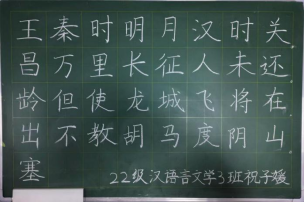 王秦时明月汉时关
昌万里长征人未还
龄但使龙城飞将在
出不教胡马度阴山
塞
22级汉语言文学3班祝子媛